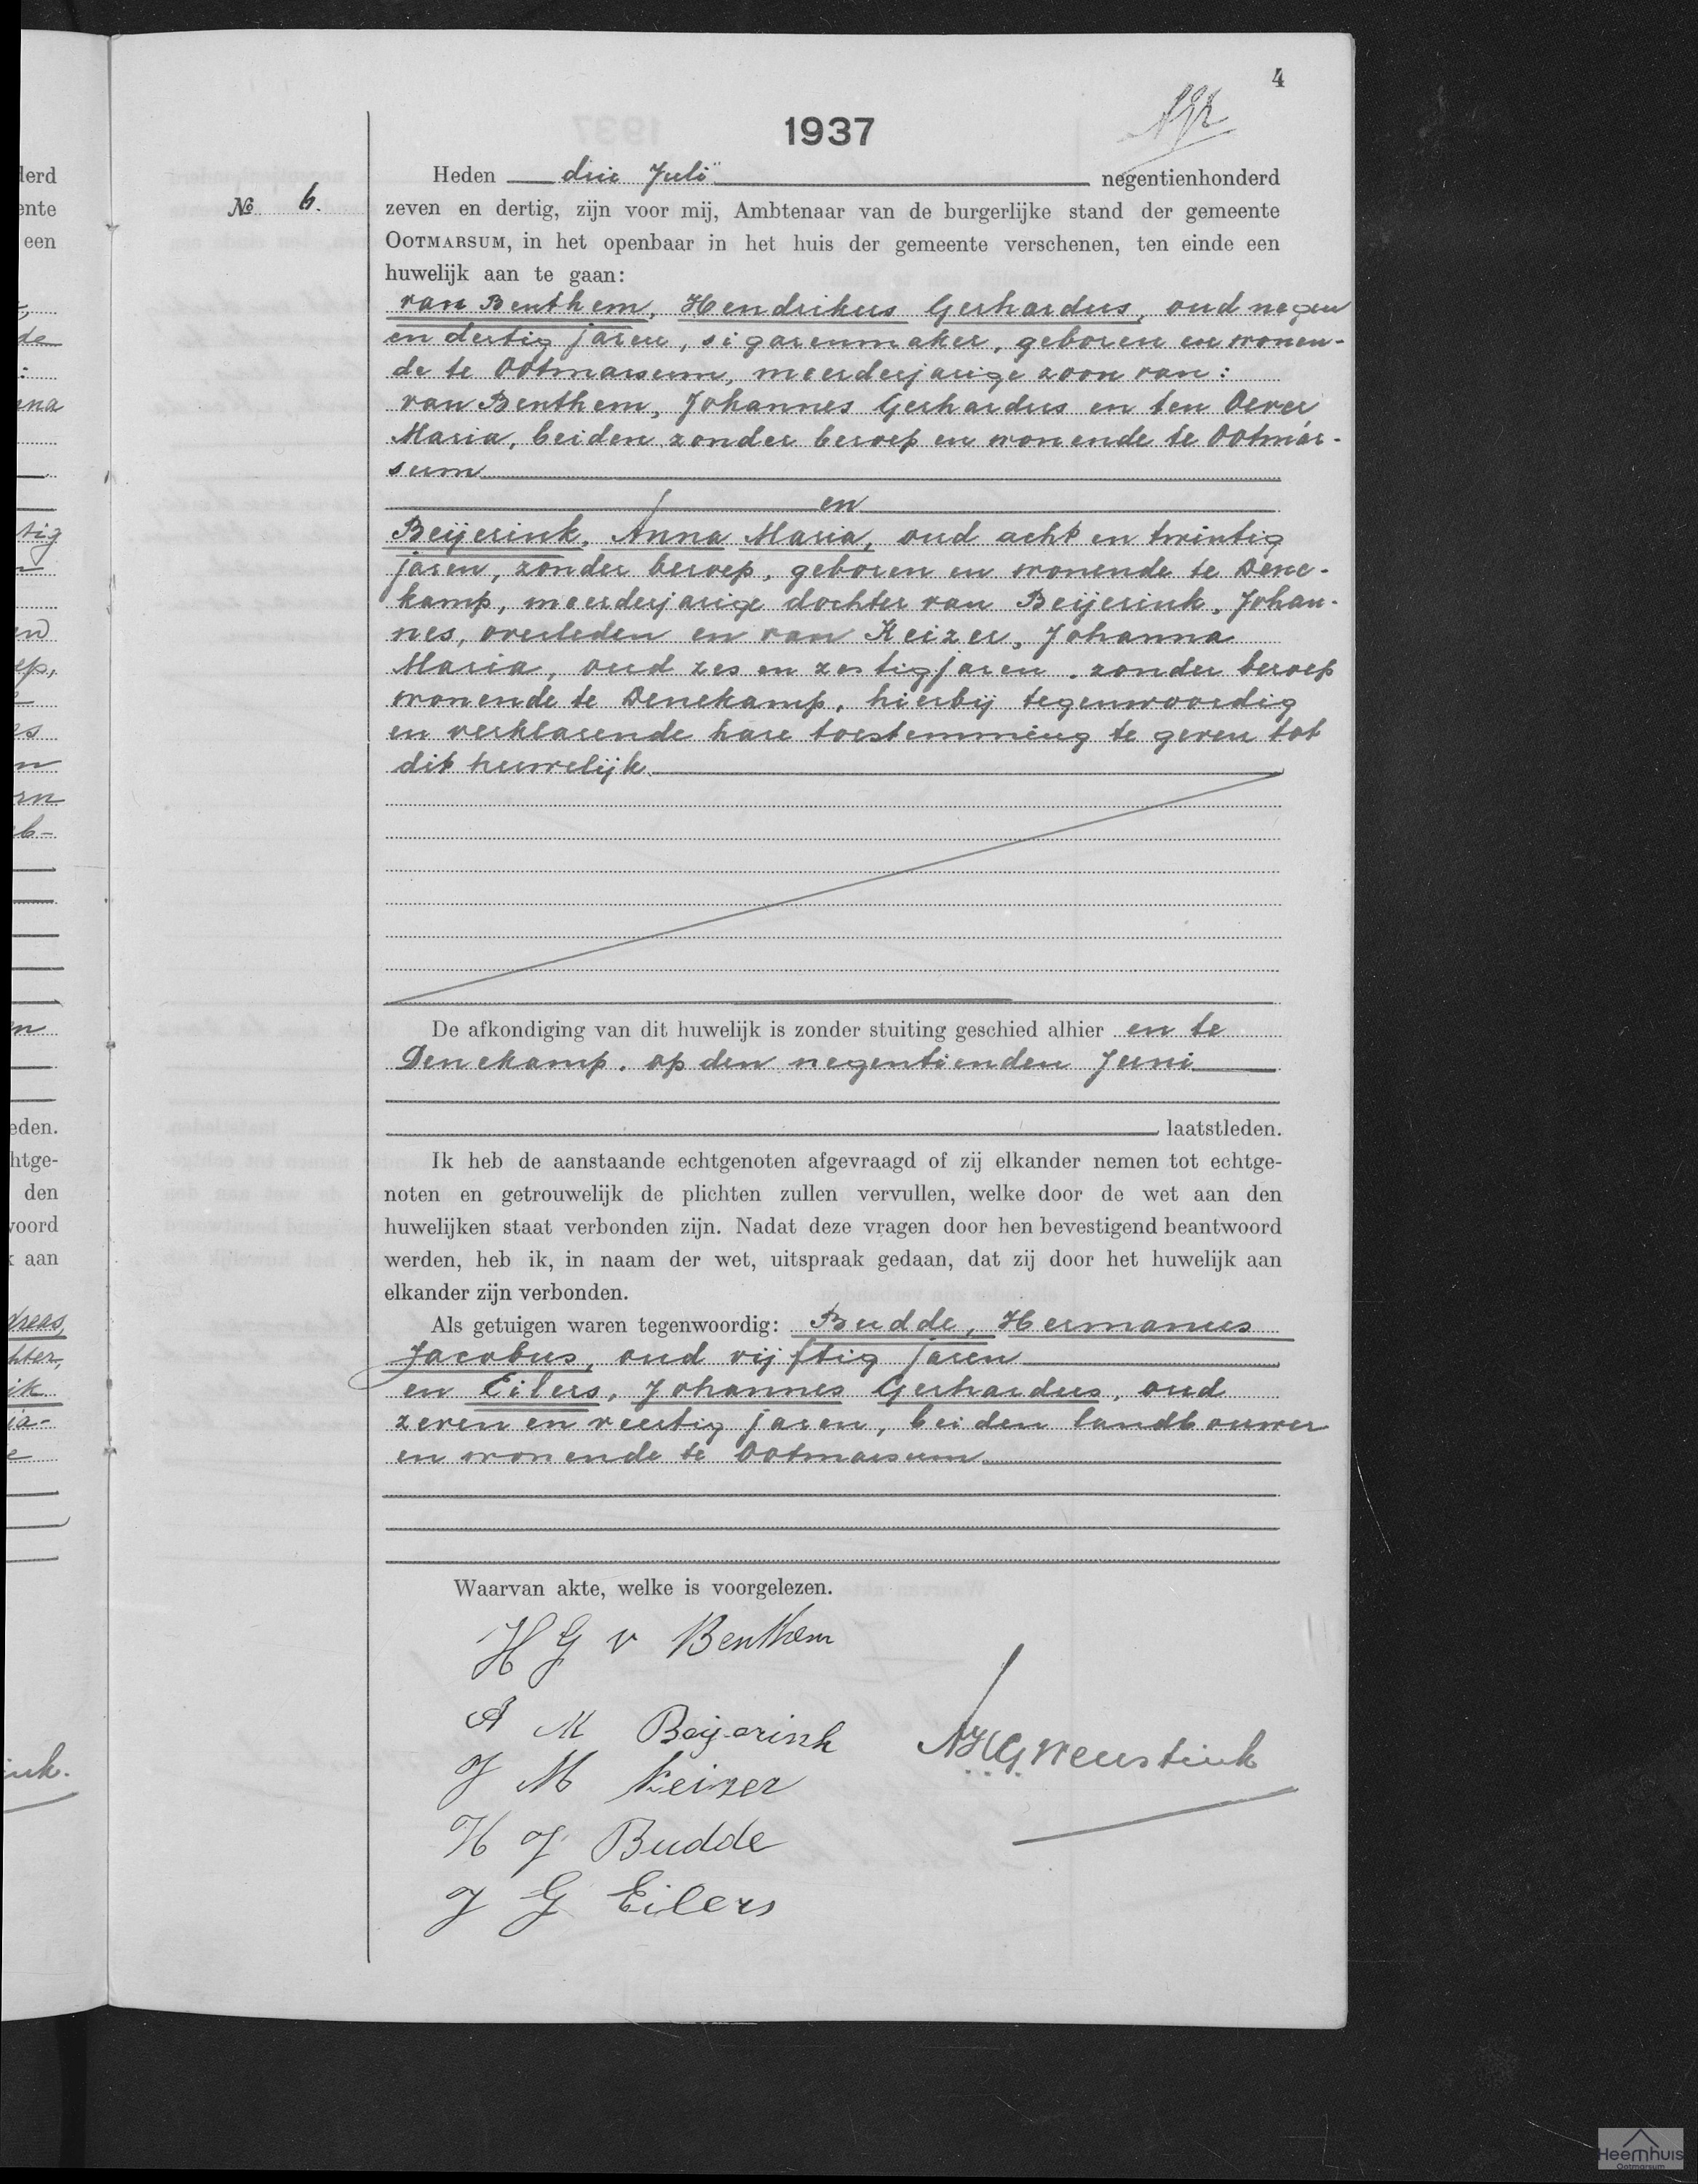 4
1937
Heden drie Juli negentienhonderd
№ 6.
zeven en dertig, zijn voor mij, Ambtenaar van de burgerlijke stand der gemeente
OOTMARSUM, in het openbaar in het huis der gemeente verschenen, ten einde een
huwelijk aan te gaan:
van Benthem, Hendrikus Gerhardus, oud negen
en dertig jaren, sigarenmaker, geboren en wonen-
de te Ootmarsum, meerderjarige zoon van:
van Benthem, Johannes Gerhardus en ten Oever
Maria, beiden zonder beroep en wonende te Ootmar-
sum
en
Beijerink, Anna Maria, oud acht en twintig
jaren, zonder beroep, geboren en wonende te Dene-
kamp, meerderjarige dochter van Beijerink, Johan-
nes, overleden en van Keizer, Johanna
Maria, oud zes en zestig jaren, zonder beroep
wonende te Denekamp, hierbij tegenwoordig
en verklarende hare toestemming te geven tot
dit huwelijk.
De afkondiging van dit huwelijk is zonder stuiting geschied alhier en te
Denekamp. op den negentienden Juni
laatstleden.
Ik heb de aanstaande echtgenoten afgevraagd of zij elkander nemen tot echtge-
noten en getrouwelijk de plichten zullen vervullen, welke door de wet aan den
huwelijken staat verbonden zijn. Nadat deze vragen door hen bevestigend beantwoord
werden, heb ik, in naam der wet, uitspraak gedaan, dat zij door het huwelijk aan
elkander zijn verbonden.
Als getuigen waren tegenwoordig: Budde, Hermanus
Jacobus, oud vijftig jaren
en Eilers, Johannes Gerhardus, oud
zeven en veertig jaren, beiden landbouwer
en wonende te Ootmarsum
Waarvan akte, welke is voorgelezen.
H G v Benthem
A M Beijerink
J M Keizer
H J Budde
J G Eilers
Weustink
Heemhuis
Ootmarsum